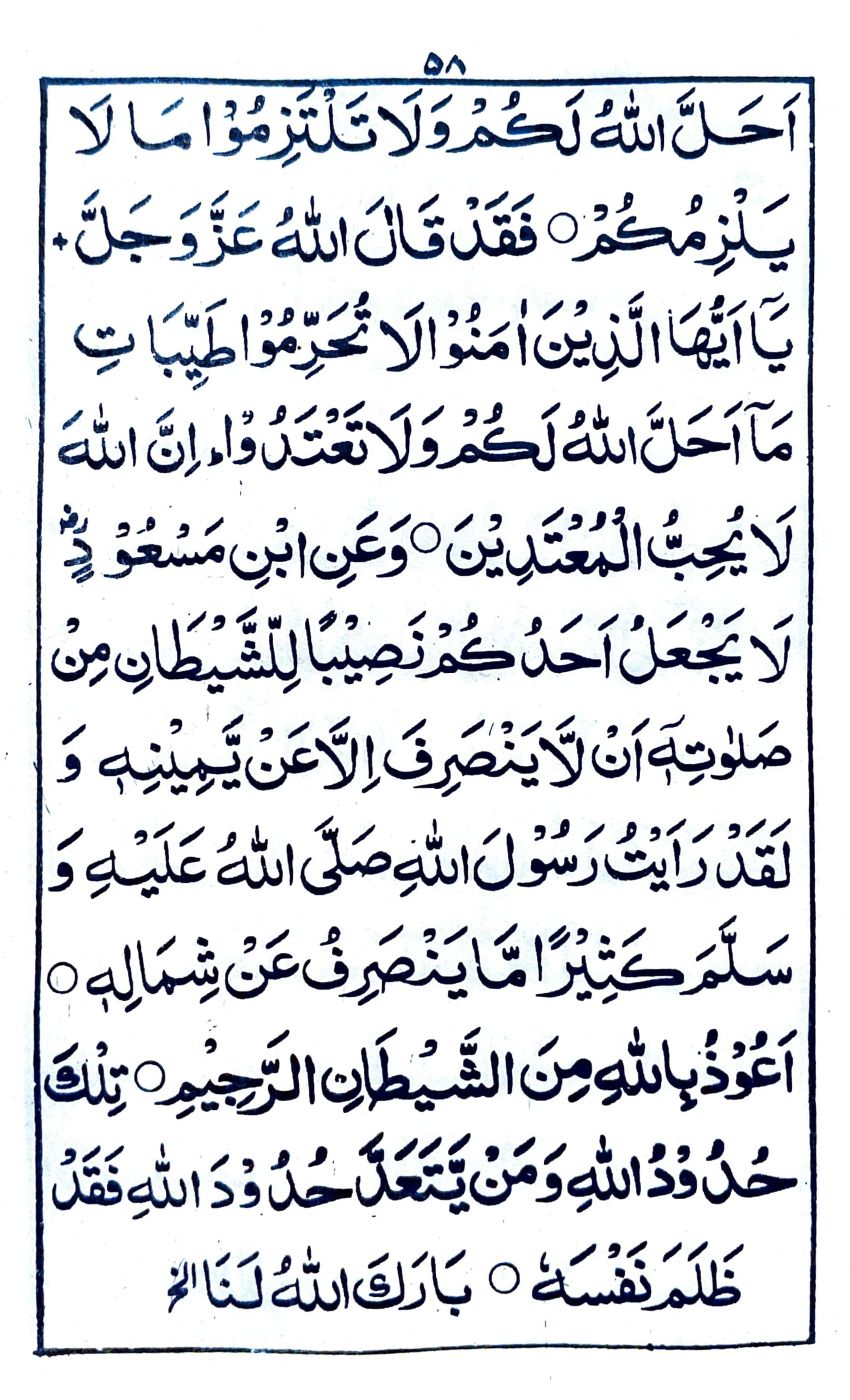 ۵۸
اَحَلَّ اللّٰهُ لَكُمْ وَلَا تَلْتَزِمُوْا مَا لَا
يَلْزِمُكُمْ ○ فَقَدْ قَالَ اللّٰهُ عَزَّ وَجَلَّ +
يَآ اَيُّهَا الَّذِيْنَ اٰمَنُوْا لَا تُحَرِّمُوْا طَيِّبَاتِ
مَآ اَحَلَّ اللّٰهُ لَكُمْ وَلَا تَعْتَدُوْاء اِنَّ اللّٰهَ
لَا يُحِبُّ الْمُعْتَدِيْنَ ○ وَعَنِ ابْنِ مَسْعُوْدٍ رض
لَا يَجْعَلُ اَحَدُكُمْ نَصِيْبًا لِلشَّيْطَانِ مِنْ
صَلٰوتِهٖٓ اَنْ لَّا يَنْصَرِفَ اِلَّا عَنْ يَّمِيْنِهٖ وَ
لَقَدْ رَاَيْتُ رَسُوْلَ اللّٰهِ صَلَّى اللّٰهُ عَلَيْهِ وَ
سَلَّمَ كَثِيْرًا مَّا يَنْصَرِفُ عَنْ شِمَالِهٖ ○
اَعُوْذُ بِاللّٰهِ مِنَ الشَّيْطَانِ الرَّجِيْمِ ○ تِلْكَ
حُدُوْدُ اللّٰهِ وَمَنْ يَّتَعَدَّ حُدُوْدَ اللّٰهِ فَقَدْ
ظَلَمَ نَفْسَهٗ ○ بَارَكَ اللّٰهُ لَنَا الخ